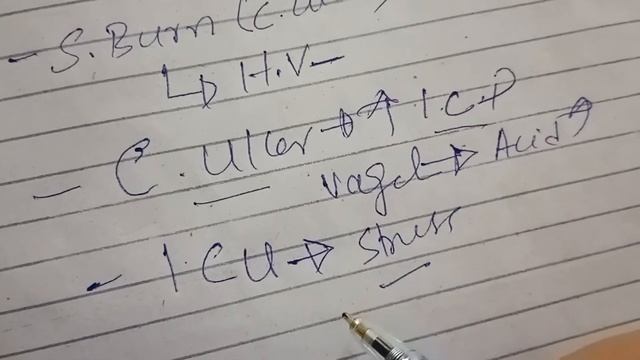 - S. Burn (C.U
↳ H.V-
- C. Ulcer → ↑ ICP
vagal → Acid ↑
- ICU → stress